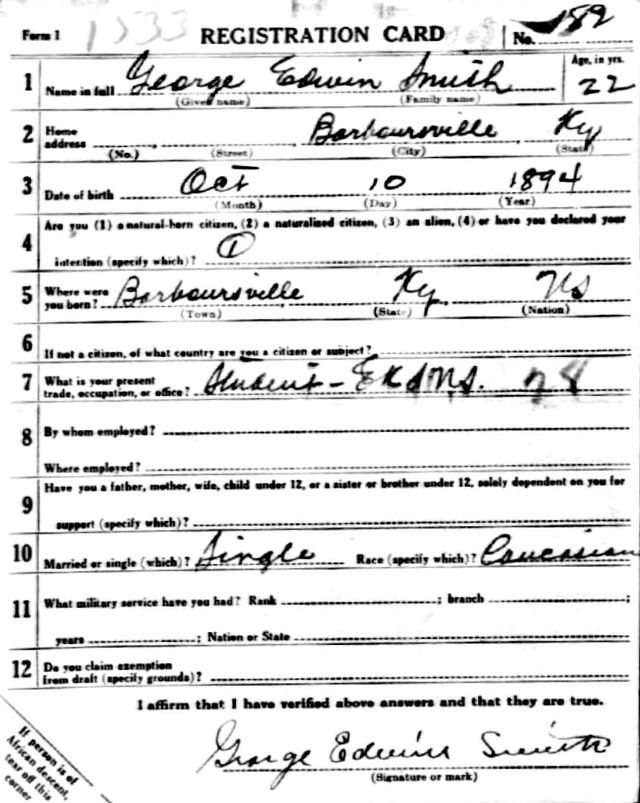 Form 1 1533 REGISTRATION CARD No. 189
1 Name in full George Edwin Smith Age, in yrs. 22
(Given name) (Family name)
2 Home address Barbourville Ky
(No.) (Street) (City) (State)
3 Date of birth Oct 10 1894
(Month) (Day) (Year)
4 Are you (1) a natural-born citizen, (2) a naturalized citizen, (3) an alien, (4) or have you declared your
intention (specify which)? 1
5 Where were you born? Barbourville Ky. US
(Town) (State) (Nation)
6 If not a citizen, of what country are you a citizen or subject?
7 What is your present trade, occupation, or office? Student - E K S N S. 28
8 By whom employed?
Where employed?
9 Have you a father, mother, wife, child under 12, or a sister or brother under 12, solely dependent on you for
support (specify which)?
10 Married or single (which)? Single Race (specify which)? Caucasian
11 What military service have you had? Rank ; branch ;
years ; Nation or State
12 Do you claim exemption from draft (specify grounds)?
I affirm that I have verified above answers and that they are true.
George Edwin Smith
(Signature or mark)
If person is of
African descent,
tear off this
corner